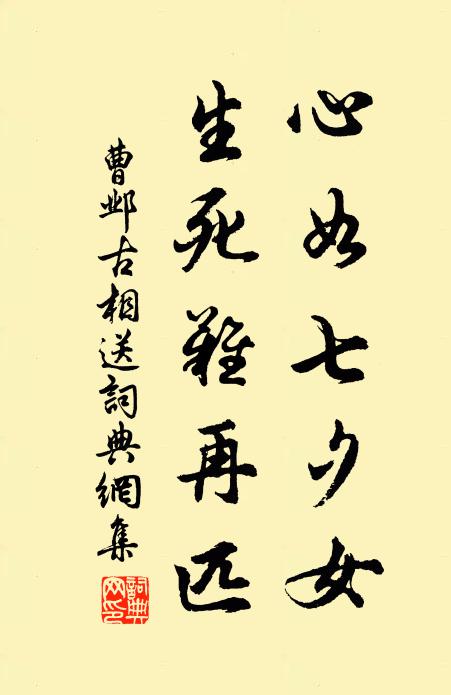 心如七夕女
生死難再匹
曹邺古相送詞典網集
詞典網印